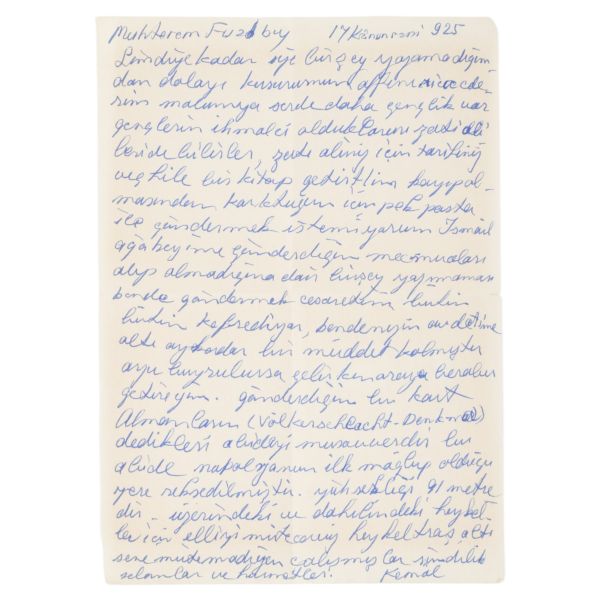 Muhterem Fuad bey 17 Kânunusani 925
Şimdiye kadar size birşey yazamadığım
dan dolayı kusurumun affını rica ede-
rim malumya serde daha gençlik var
gençlerin ihmalci olduklarını zatı ali
leride bilirler, zatı aliniz için
bir kitap getirttim kayıp ol-
masından korktuğum için pek posta
ile göndermek istemiyorum İsmail
ağabeyime gönderdiğim mecmuaları
alıp almadığına dair birşey yazmaması
bende göndermek cesaretini bütün
bütün kesrediyor, bendenizin avdetime
altı ay kadar bir müddet kalmıştır
arzu buyrulursa gelirken oraya beraber
getireyim. gönderdiğim bu kart
Almanların (Völkerschlacht-Denkmal)
dedikleri abideyi musavverdir bu
abide napolyonun ilk mağlup olduğu
yere rekzedilmiştir. yüksekliği 91 metre
dir. üzerindeki ve dahilindeki heykel-
ler için elliyi mütecaviz heykeltraş altı
sene mütemadiyen çalışmışlar şimdilik
selamlar ve hürmetler. Kemal